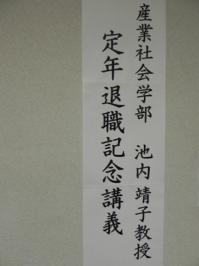 産業社会学部　池内靖子教授
定年退職記念講義